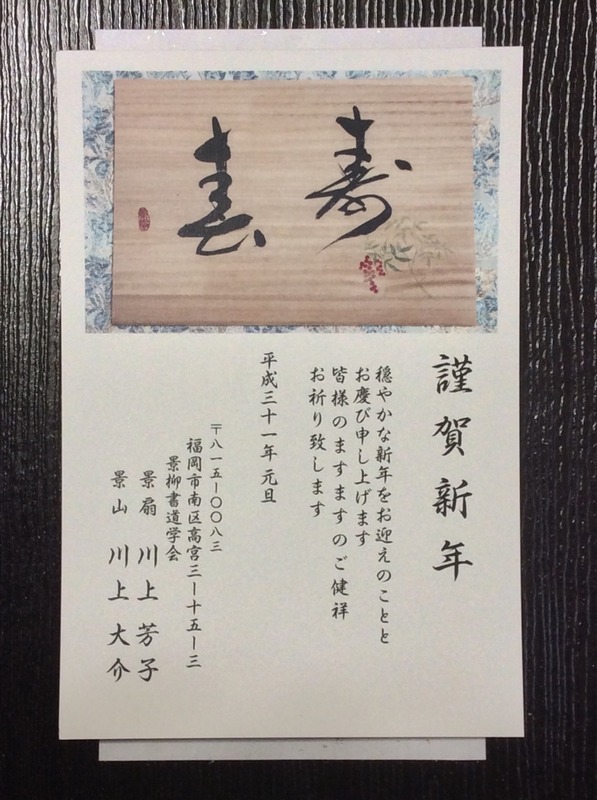 寿
春
謹賀新年
穏やかな新年をお迎えのことと
お慶び申し上げます
皆様のますますのご健祥
お祈り致します
平成三十一年 元旦
〒八一五ー〇〇八三
福岡市南区高宮三ー十五ー三
景柳書道学会
景扇 川上 芳子
景山 川上 大介